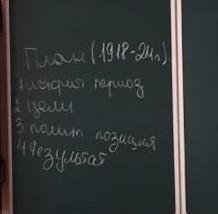 План (1918-24г.)
1 истор период
2 цели
3 полит позиция
4 результат